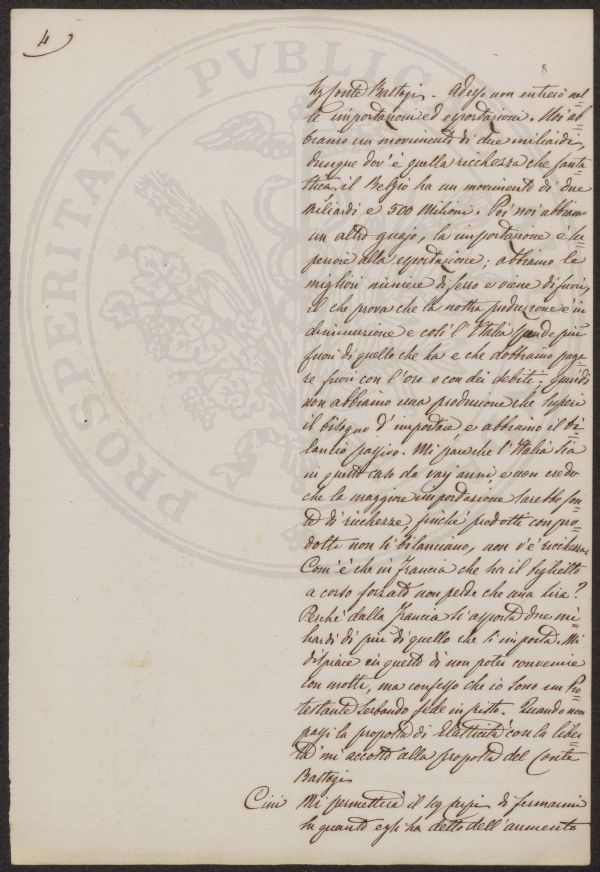 4
8
Sig Conte Bastogi. Adesso non entrerò nel=
le importazioni ed esportazioni. Noi ab=
biamo un movimento di due miliardi,
dunque dov'è quella ricchezza che fanta=
stica, il Belgio ha un movimento di due
Miliardi e 500 Milioni. Poi noi abbiamo
un altro guajo, la importazione è su=
periore alla esportazione; abbiamo le
migliori miniere di ferro e viene di fuori,
il che prova che la nostra produzione è in
diminuzione e così l'Italia spende più
fuori di quello che ha e che dobbiamo paga=
re fuori con l'oro o con dei debiti. Quindi
non abbiamo una produzione che superi
il bisogno d'importare e abbiamo il bi=
lancio passivo. Mi pare che l'Italia sia
in questo caso da varj anni e non credo
che la maggiore importazione sarebbe fon=
te di ricchezze, finché prodotti con pro=
dotti non si bilanciano, non v'è ricchezza.
Com'è che in Francia che ha il biglietto
a corso forzato non perde che una lira?
Perché dalla Francia si asporta due mi=
liardi di più di quello che s'importa. Mi
dispiace in questo di non poter convenire
con molti, ma confesso che io sono un Pro=
testante serbando fede in petto. Quando non
passi la proposta di Elasticità con la liber=
tà mi accosto alla proposta del Conte
Bastogi
Cini Mi permetterà il Sig di fermarmi
su quanto egli ha detto dell'aumento
PROSPERITATI PVBLICAE